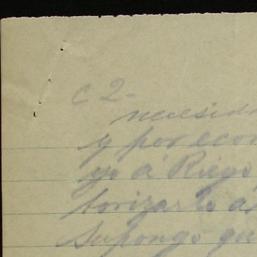 c 2-
necesid
y por econ
yo á Riego
torizarlo á
supongo que